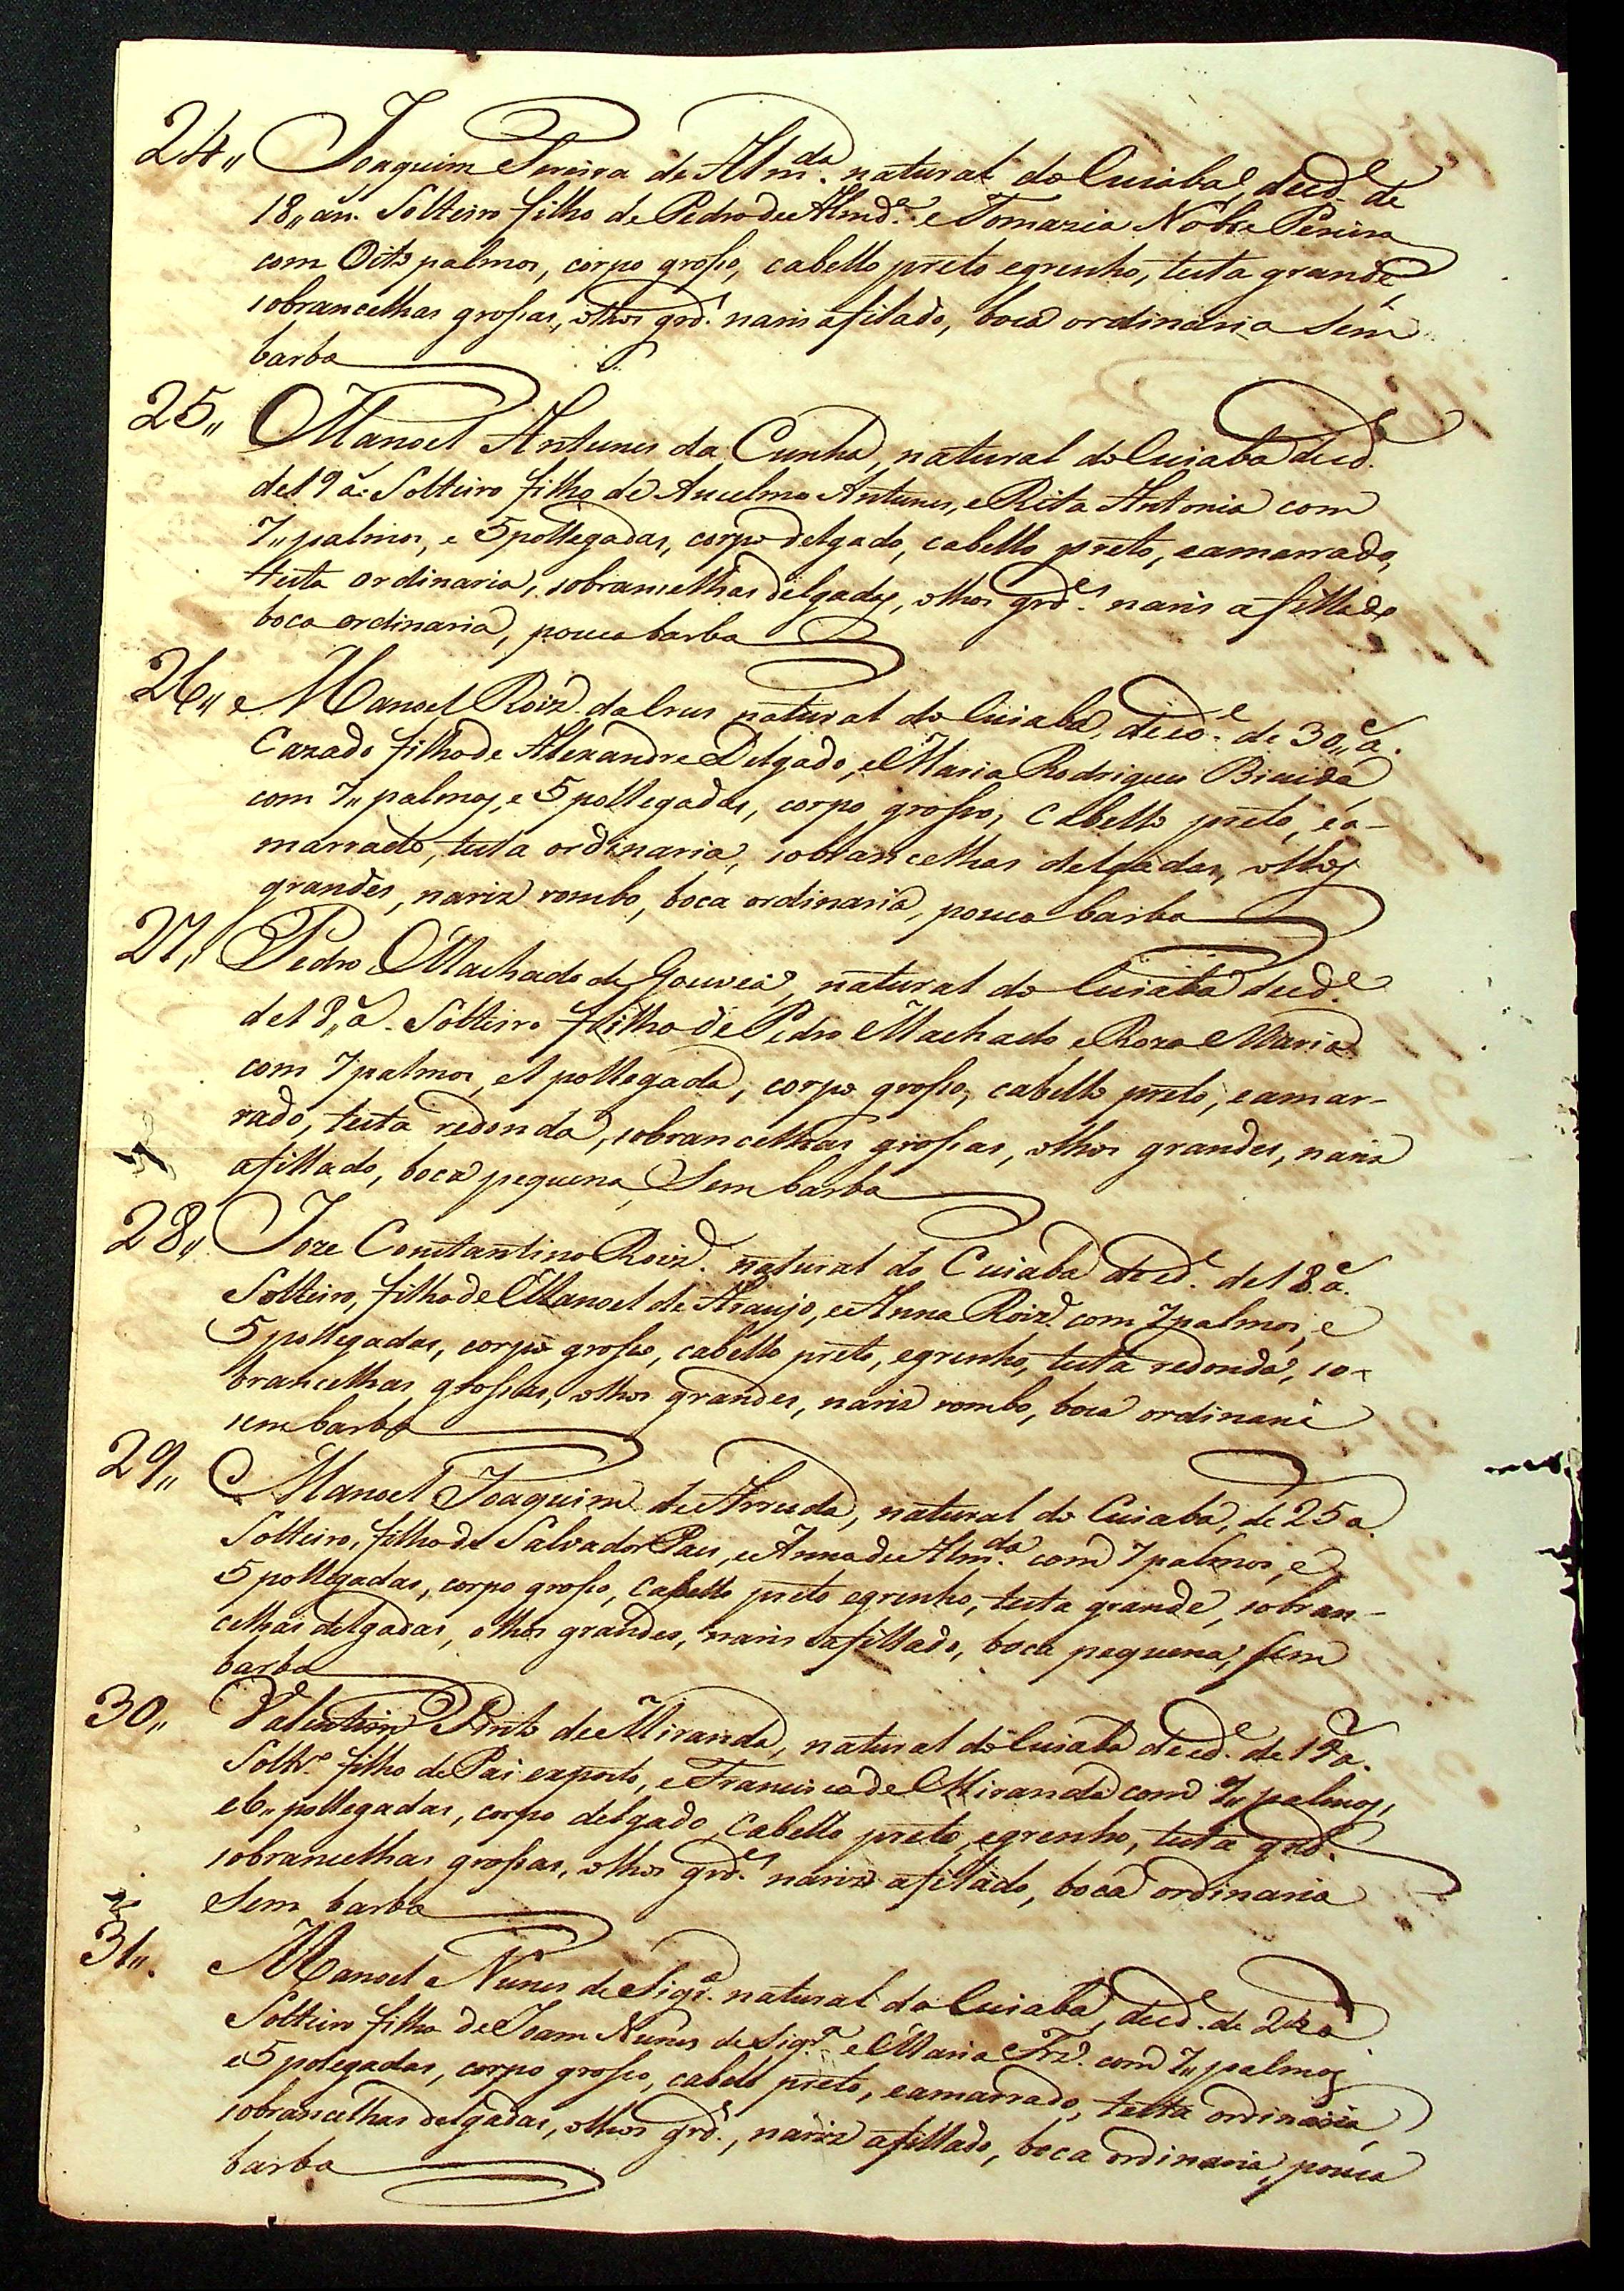 24,, Joaquim Pereira de Alm.da natural do Cuiabá, de id.e de
18,, an. Solteiro filho de Pedro de Almd.a e Tomazia Nobre Pereira
com Oito palmos, corpo grosso, cabello preto e grenho, testa grande,
sobrancelhas grossas, olhos grd.s naris afilado, boca ordinaria sem
barba
25,, Manoel Antunes da Cunha, natural do Cuiaba de id.e
de 19 a. Solteiro filho de Ancelmo Antunes, e Rita Antonia com
7,, palmos, e 5 pollegadas, corpo delgado, cabello preto, e amarrado,
testa ordinaria, sobrancelhas delgadas, olhos grd.es naris afillado
boca ordinaria, pouca barba
26,, Manoel Roiz da Crus natural do Cuiabá, de id.e de 30,, a.
Cazado filho de Alexandre Delgado, e Maria Rodrigues Bicuida
com 7,, palmos, e 5 pollegadas, corpo grosso, cabello preto, e a-
marrado, testa ordinaria, sobrancelhas delgadas, olhos
grandes, nariz rombo, boca ordinaria, pouca barba
27,, Pedro Machado de Gouveia, natural do Cuiabá de id.e
de 18,, a. Solteiro filho de Pedro Machado e Roza Maria
com 7 palmos, e 1 pollegada, corpo grosso, cabello preto, e amar-
rado, testa redonda, sobrancelhas grossas, olhos grandes, nariz
afillado, boca pequena, Sem barba
28,, Joze Constantino Roiz. natural do Cuiabá de id.e de 18. a.
Solteiro, filho de Manoel de Araujo, e Anna Roiz. com 7 palmos, e
5 pollegadas, corpo grosso, cabello preto, e grenho, testa redonda, so-
brancelhas grossas, olhos grandes, nariz rombo, boca ordinaria
sem barba
29,, Manoel Joaquim de Arruda, natural do Cuiabá, de 25 a.
Solteiro, filho de Salvador Paes, e Anna de Alm.da com 7 palmos, e
5 pollegadas, corpo grosso, cabello preto e grenho, testa grande, sobran-
celhas delgadas, olhos grandes, naris afillado, boca pequena, sem
barba
30,, Valentim Pinto de Miranda, natural do Cuiabá de id.e de 19 a.
Soltr.o filho de Pai exposto, e Francisca de Miranda com 7,, palmos,
e 6,, pollegadas, corpo delgado, cabello preto, e grenho, testa grd.e
sobrancelhas grossas, olhos grd.es nariz afilado, boca ordinaria
Sem barba
31,, Manoel Nunes de Siqr.a natural do Cuiabá, de id.e de 24 a.
Solteiro filho de Joam Nunes de Siqr.a e Maria Frz. com 7,, palmos
e 5 polegadas, corpo grosso, cabelo preto, e amarrado, testa ordinaria,
sobrancelhas delgadas, olhos grd.s, nariz afillado, boca ordinaria, pouca
barba